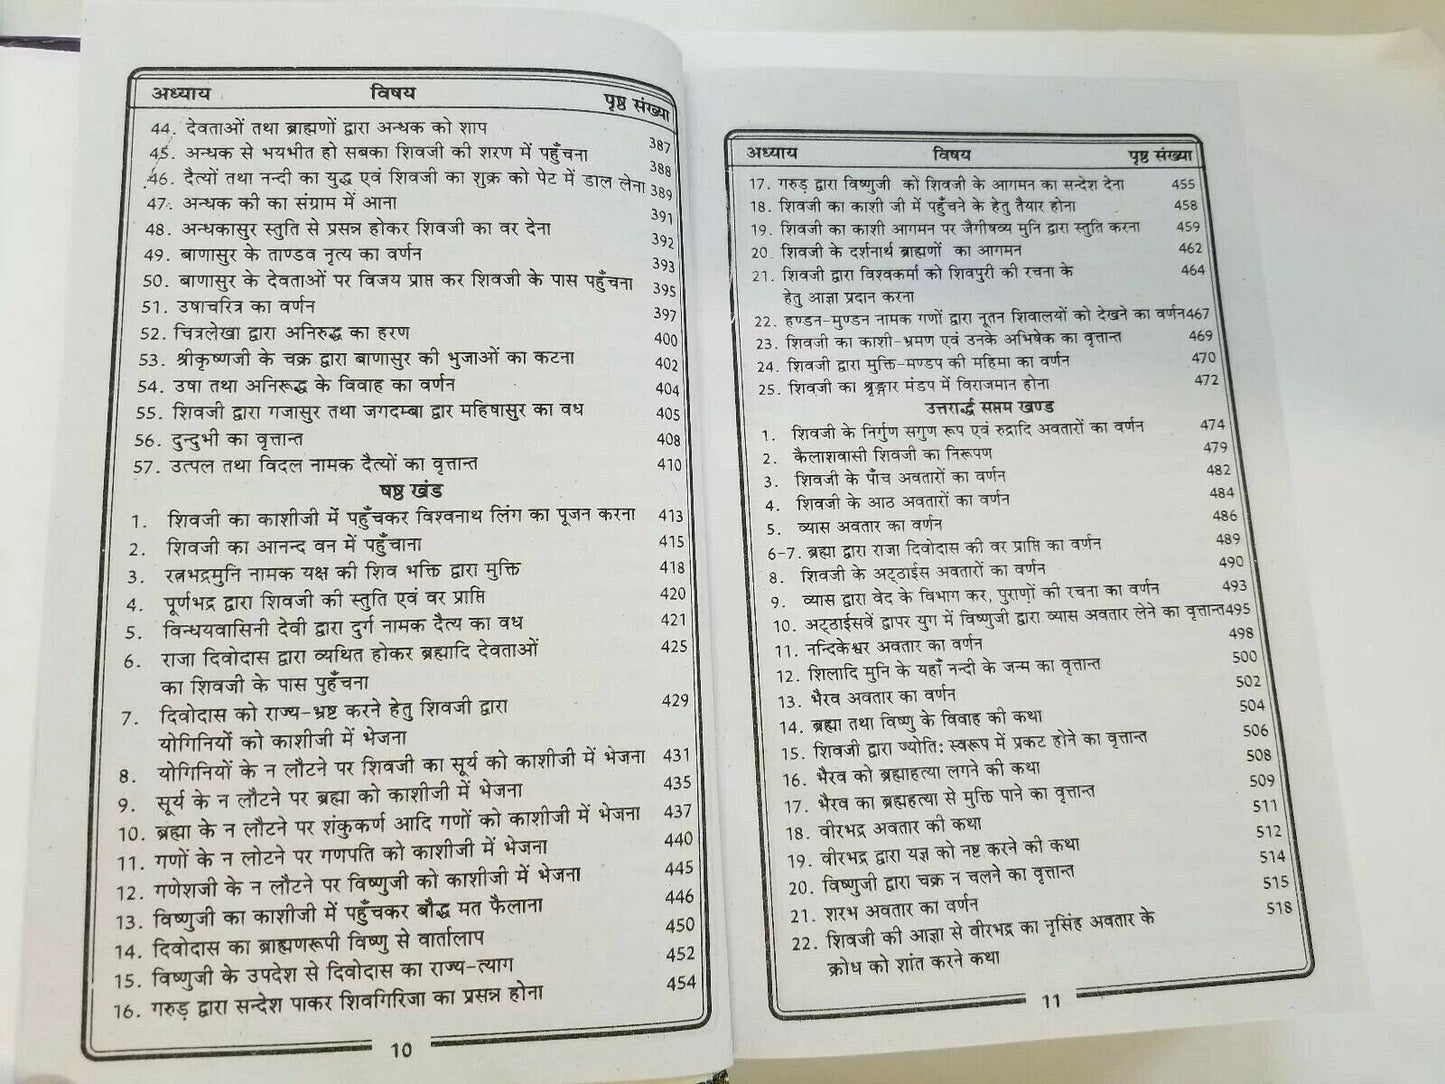 अध्याय विषय पृष्ठ संख्या
44. देवताओं तथा ब्राह्मणों द्वारा अन्धक को शाप 387
45. अन्धक से भयभीत हो सबका शिवजी की शरण में पहुँचना 388
46. दैत्यों तथा नन्दी का युद्ध एवं शिवजी का शुक्र को पेट में डाल लेना 389
47. अन्धक की का संग्राम में आना 391
48. अन्धकासुर स्तुति से प्रसन्न होकर शिवजी का वर देना 392
49. बाणासुर के ताण्डव नृत्य का वर्णन 393
50. बाणासुर के देवताओं पर विजय प्राप्त कर शिवजी के पास पहुँचना 395
51. उषाचरित्र का वर्णन 397
52. चित्रलेखा द्वारा अनिरुद्ध का हरण 400
53. श्रीकृष्णजी के चक्र द्वारा बाणासुर की भुजाओं का कटना 402
54. उषा तथा अनिरूद्ध के विवाह का वर्णन 404
55. शिवजी द्वारा गजासुर तथा जगदम्बा द्वार महिषासुर का वध 405
56. दुन्दुभी का वृत्तान्त 408
57. उत्पल तथा विदल नामक दैत्यों का वृत्तान्त 410
षष्ठ खंड
1. शिवजी का काशीजी में पहुँचकर विश्वनाथ लिंग का पूजन करना 413
2. शिवजी का आनन्द वन में पहुँचाना 415
3. रत्नभद्रमुनि नामक यक्ष की शिव भक्ति द्वारा मुक्ति 418
4. पूर्णभद्र द्वारा शिवजी की स्तुति एवं वर प्राप्ति 420
5. विन्धयवासिनी देवी द्वारा दुर्ग नामक दैत्य का वध 421
6. राजा दिवोदास द्वारा व्यथित होकर ब्रह्मादि देवताओं 425
का शिवजी के पास पुहँचना
7. दिवोदास को राज्य-भ्रष्ट करने हेतु शिवजी द्वारा 429
योगिनियों को काशीजी में भेजना
8. योगिनियों के न लौटने पर शिवजी का सूर्य को काशीजी में भेजना 431
9. सूर्य के न लौटने पर ब्रह्मा को काशीजी में भेजना 435
10. ब्रह्मा के न लौटने पर शंकुकर्ण आदि गणों को काशीजी में भेजना 437
11. गणों के न लोटने पर गणपति को काशीजी में भेजना 440
12. गणेशजी के न लौटने पर विष्णुजी को काशीजी में भेजना 445
13. विष्णुजी का काशीजी में पहुँचकर बौद्ध मत फैलाना 446
14. दिवोदास का ब्राह्मणरूपी विष्णु से वार्तालाप 450
15. विष्णुजी के उपदेश से दिवोदास का राज्य-त्याग 452
16. गरुड़ द्वारा सन्देश पाकर शिवगिरिजा का प्रसन्न होना 454
10
अध्याय विषय पृष्ठ संख्या
17. गरुड़ द्वारा विष्णुजी को शिवजी के आगमन का सन्देश देना 455
18. शिवजी का काशी जी में पहुँचने के हेतु तैयार होना 458
19. शिवजी का काशी आगमन पर जैगीषव्य मुनि द्वारा स्तुति करना 459
20. शिवजी के दर्शनार्थ ब्राह्मणों का आगमन 462
21. शिवजी द्वारा विश्वकर्मा को शिवपुरी की रचना के 464
हेतु आज्ञा प्रदान करना
22. हण्डन-मुण्डन नामक गणों द्वारा नूतन शिवालयों को देखने का वर्णन 467
23. शिवजी का काशी-भ्रमण एवं उनके अभिषेक का वृत्तान्त 469
24. शिवजी द्वारा मुक्ति-मण्डप की महिमा का वर्णन 470
25. शिवजी का श्रृङ्गार मंडप में विराजमान होना 472
उत्तरार्द्ध सप्तम खण्ड
1. शिवजी के निर्गुण सगुण रूप एवं रुद्रादि अवतारों का वर्णन 474
2. कैलाशवासी शिवजी का निरूपण 479
3. शिवजी के पाँच अवतारों का वर्णन 482
4. शिवजी के आठ अवतारों का वर्णन 484
5. व्यास अवतार का वर्णन 486
6-7. ब्रह्मा द्वारा राजा दिवोदास की वर प्राप्ति का वर्णन 489
8. शिवजी के अट्ठाईस अवतारों का वर्णन 490
9. व्यास द्वारा वेद के विभाग कर, पुराणों की रचना का वर्णन 493
10. अट्ठाईसवें द्वापर युग में विष्णुजी द्वारा व्यास अवतार लेने का वृत्तान्त 495
11. नन्दिकेश्वर अवतार का वर्णन 498
12. शिलादि मुनि के यहाँ नन्दी के जन्म का वृत्तान्त 500
13. भैरव अवतार का वर्णन 502
14. ब्रह्मा तथा विष्णु के विवाह की कथा 504
15. शिवजी द्वारा ज्योति: स्वरूप में प्रकट होने का वृत्तान्त 506
16. भैरव को ब्रह्महत्या लगने की कथा 508
17. भैरव का ब्रह्महत्या से मुक्ति पाने का वृत्तान्त 509
18. वीरभद्र अवतार की कथा 511
19. वीरभद्र द्वारा यज्ञ को नष्ट करने की कथा 512
20. विष्णुजी द्वारा चक्र न चलने का वृत्तान्त 514
21. शरभ अवतार का वर्णन 515
22. शिवजी की आज्ञा से वीरभद्र का नृसिंह अवतार के 518
क्रोध को शांत करने कथा
11